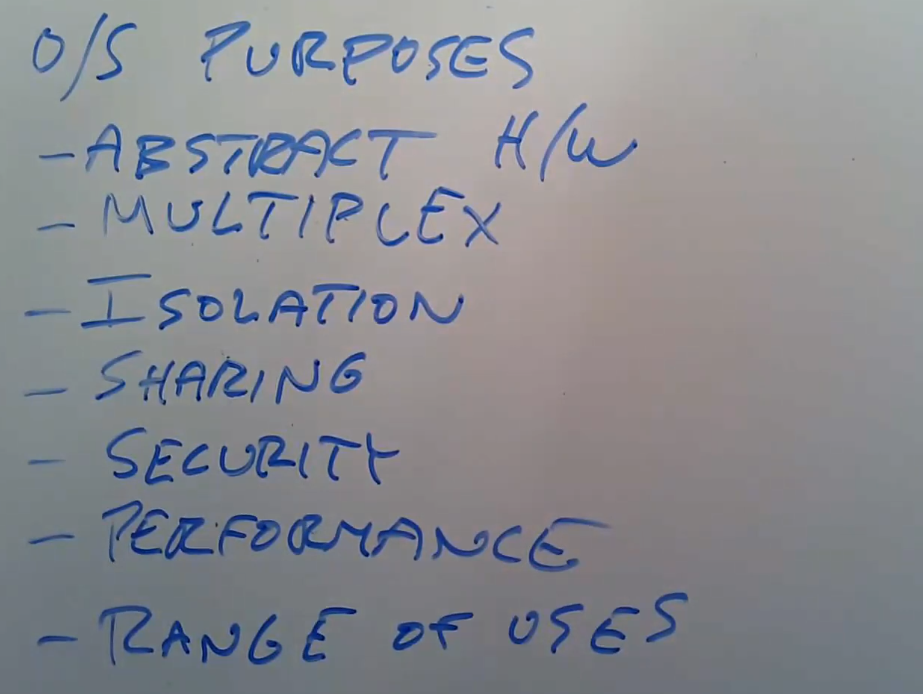 O/S PURPOSES
- ABSTRACT H/W
- MULTIPLEX
- ISOLATION
- SHARING
- SECURITY
- PERFORMANCE
- RANGE OF USES